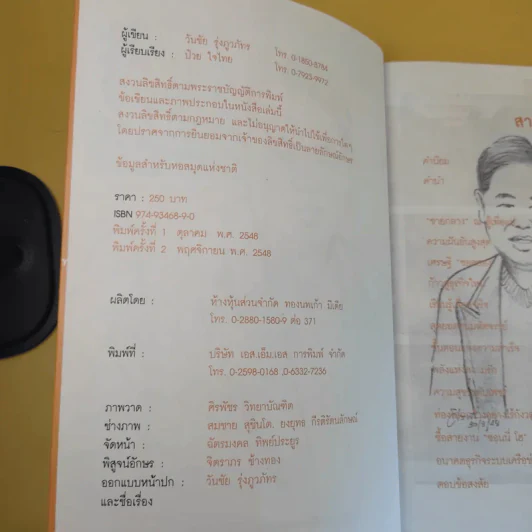 ผู้เขียน : วันชัย รุ่งภูวภัทร โทร. 0-1850-8786
ผู้เรียบเรียง : ป้าย ใจไทย โทร. 0-7933-9972
สงวนลิขสิทธิ์ตามพระราชบัญญัติการพิมพ์
ข้อเขียนและภาพประกอบในหนังสือเล่มนี้
สงวนลิขสิทธิ์ตามกฎหมาย และไม่อนุญาตให้นำไปใช้เพื่อการใดๆ
โดยปราศจากการยินยอมจากเจ้าของลิขสิทธิ์เป็นลายลักษณ์อักษร
ข้อมูลสำหรับหอสมุดแห่งชาติ
ราคา : 250 บาท
ISBN 974-93468-9-0
พิมพ์ครั้งที่ 1 ตุลาคม พ.ศ. 2548
พิมพ์ครั้งที่ 2 พฤศจิกายน พ.ศ. 2548
ผลิตโดย : ห้างหุ้นส่วนจำกัด ทองนพเก้า มีเดีย
โทร. 0-2880-1580-9 ต่อ 371
พิมพ์ที่ : บริษัท เอส.เอ็ม.เอส การพิมพ์ จำกัด
โทร. 0-2598-0168 ,0-6332-7236
ภาพวาด : ศิรพัชร วิทยาบัณฑิต
ช่างภาพ : สมชาย สุขินโต. ยงยุทธ กีรติรัตนลักษณ์
จัดหน้า : ฉัตรมงคล ทิพย์ประยูร
พิสูจน์อักษร : จิตราภร ช้างทอง
ออกแบบหน้าปก : วันชัย รุ่งภูวภัทร
และชื่อเรื่อง
สา
คำนิยม
คำนำ
เศรษฐี
ซื้อสายงาน "ซอนนี่ โฮ"
อนาคตธุรกิจระบบเครือข่
ตอบข้อสงสัย